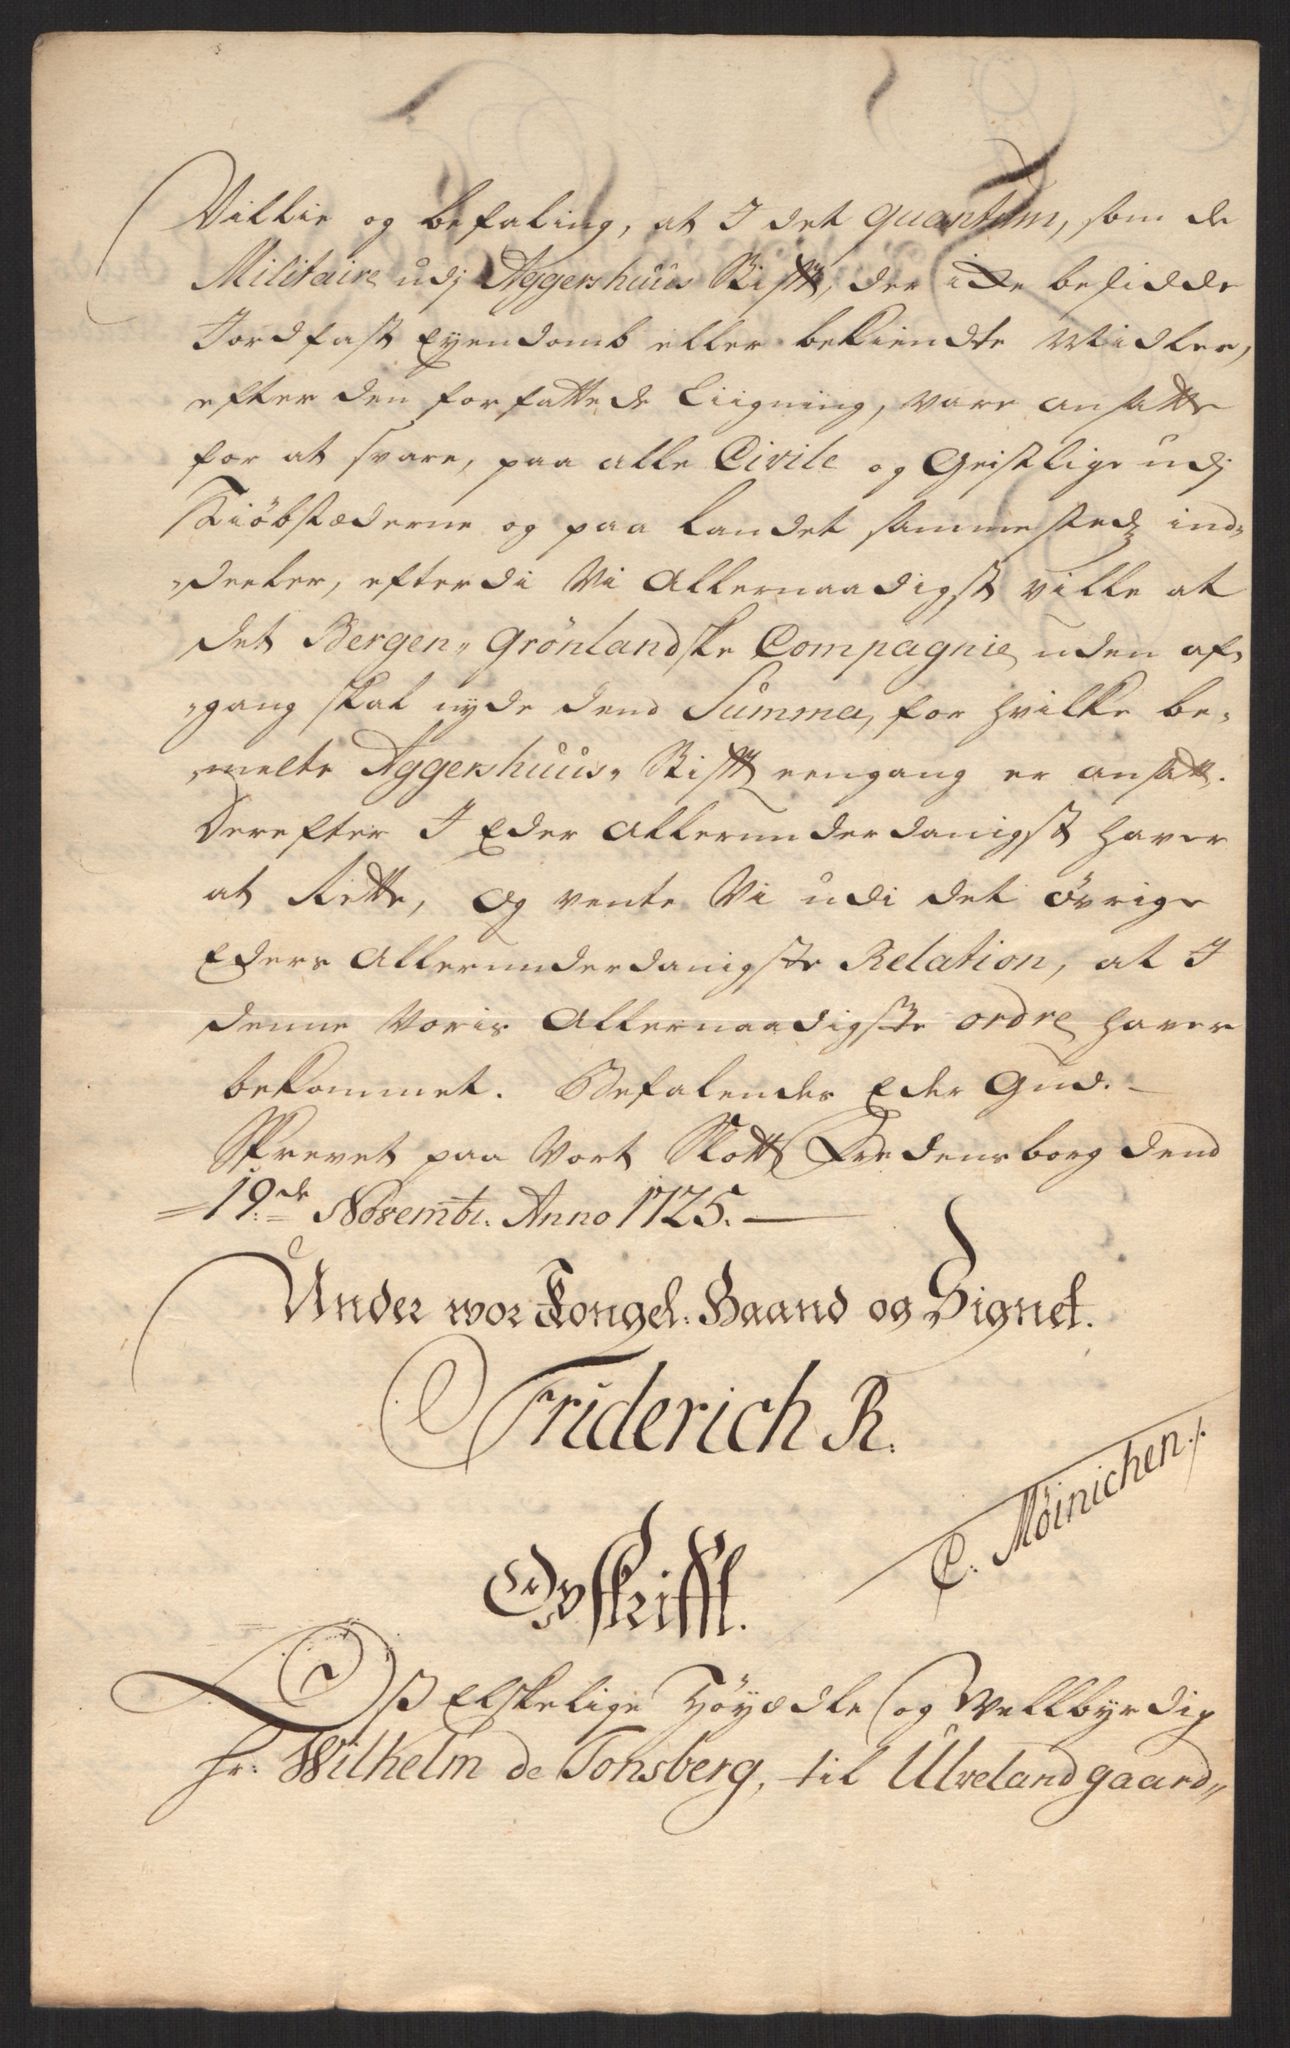 Villie og befaling, at I det quantum, som de
Militaire udj Aggershuus Stifft, der icke besidde
Jordfast Eyendomb eller bekiendte Midler,
efter den forfattede Liigning, vare ansatte
for at svare, paa alle Civile og Geistlige udj
Kiöbstæderne og paa Landet sammestedz ind-
-deeler, efterdi Vi Allernaadigst ville at
det Bergen-Grönlandske Compagnie uden af-
-gang skal nyde dend Summa, for hvilke be-
-melte Aggershuus- Stifft eengang er ansatt.
Derefter I Eder Allerunderdanigst haver
at Rette, og vente Vi udi det övrige
Eders Allerunderdanigste Relation, at I
denne Voris Allernaadigste ordre haver
bekommet. Befalendes Eder Gud. -
Skrevet paa Vort Slott Fredensborg dend
19:de Novembr. Anno 1725. —
Under wor Kongel: Haand og Signet.
Friderich R.
C. Möinichen /.
Opskrifft.
Oß Elskelige Höyædle og Wellbyrdig
hr: Wilhelm de Tonsberg, til Ulvelandgaard,,